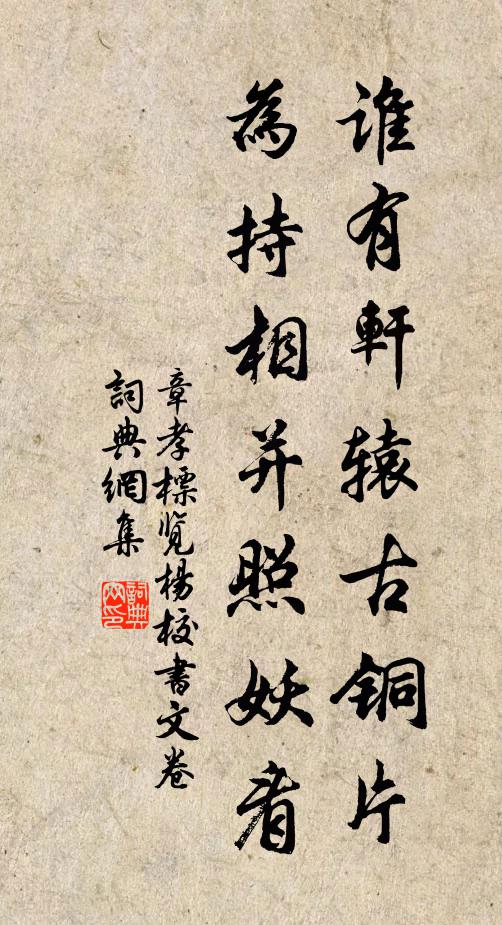 谁有軒辕古铜片
為持相并照妖看
章孝標览楊校書文卷
詞典網集
詞典
网印